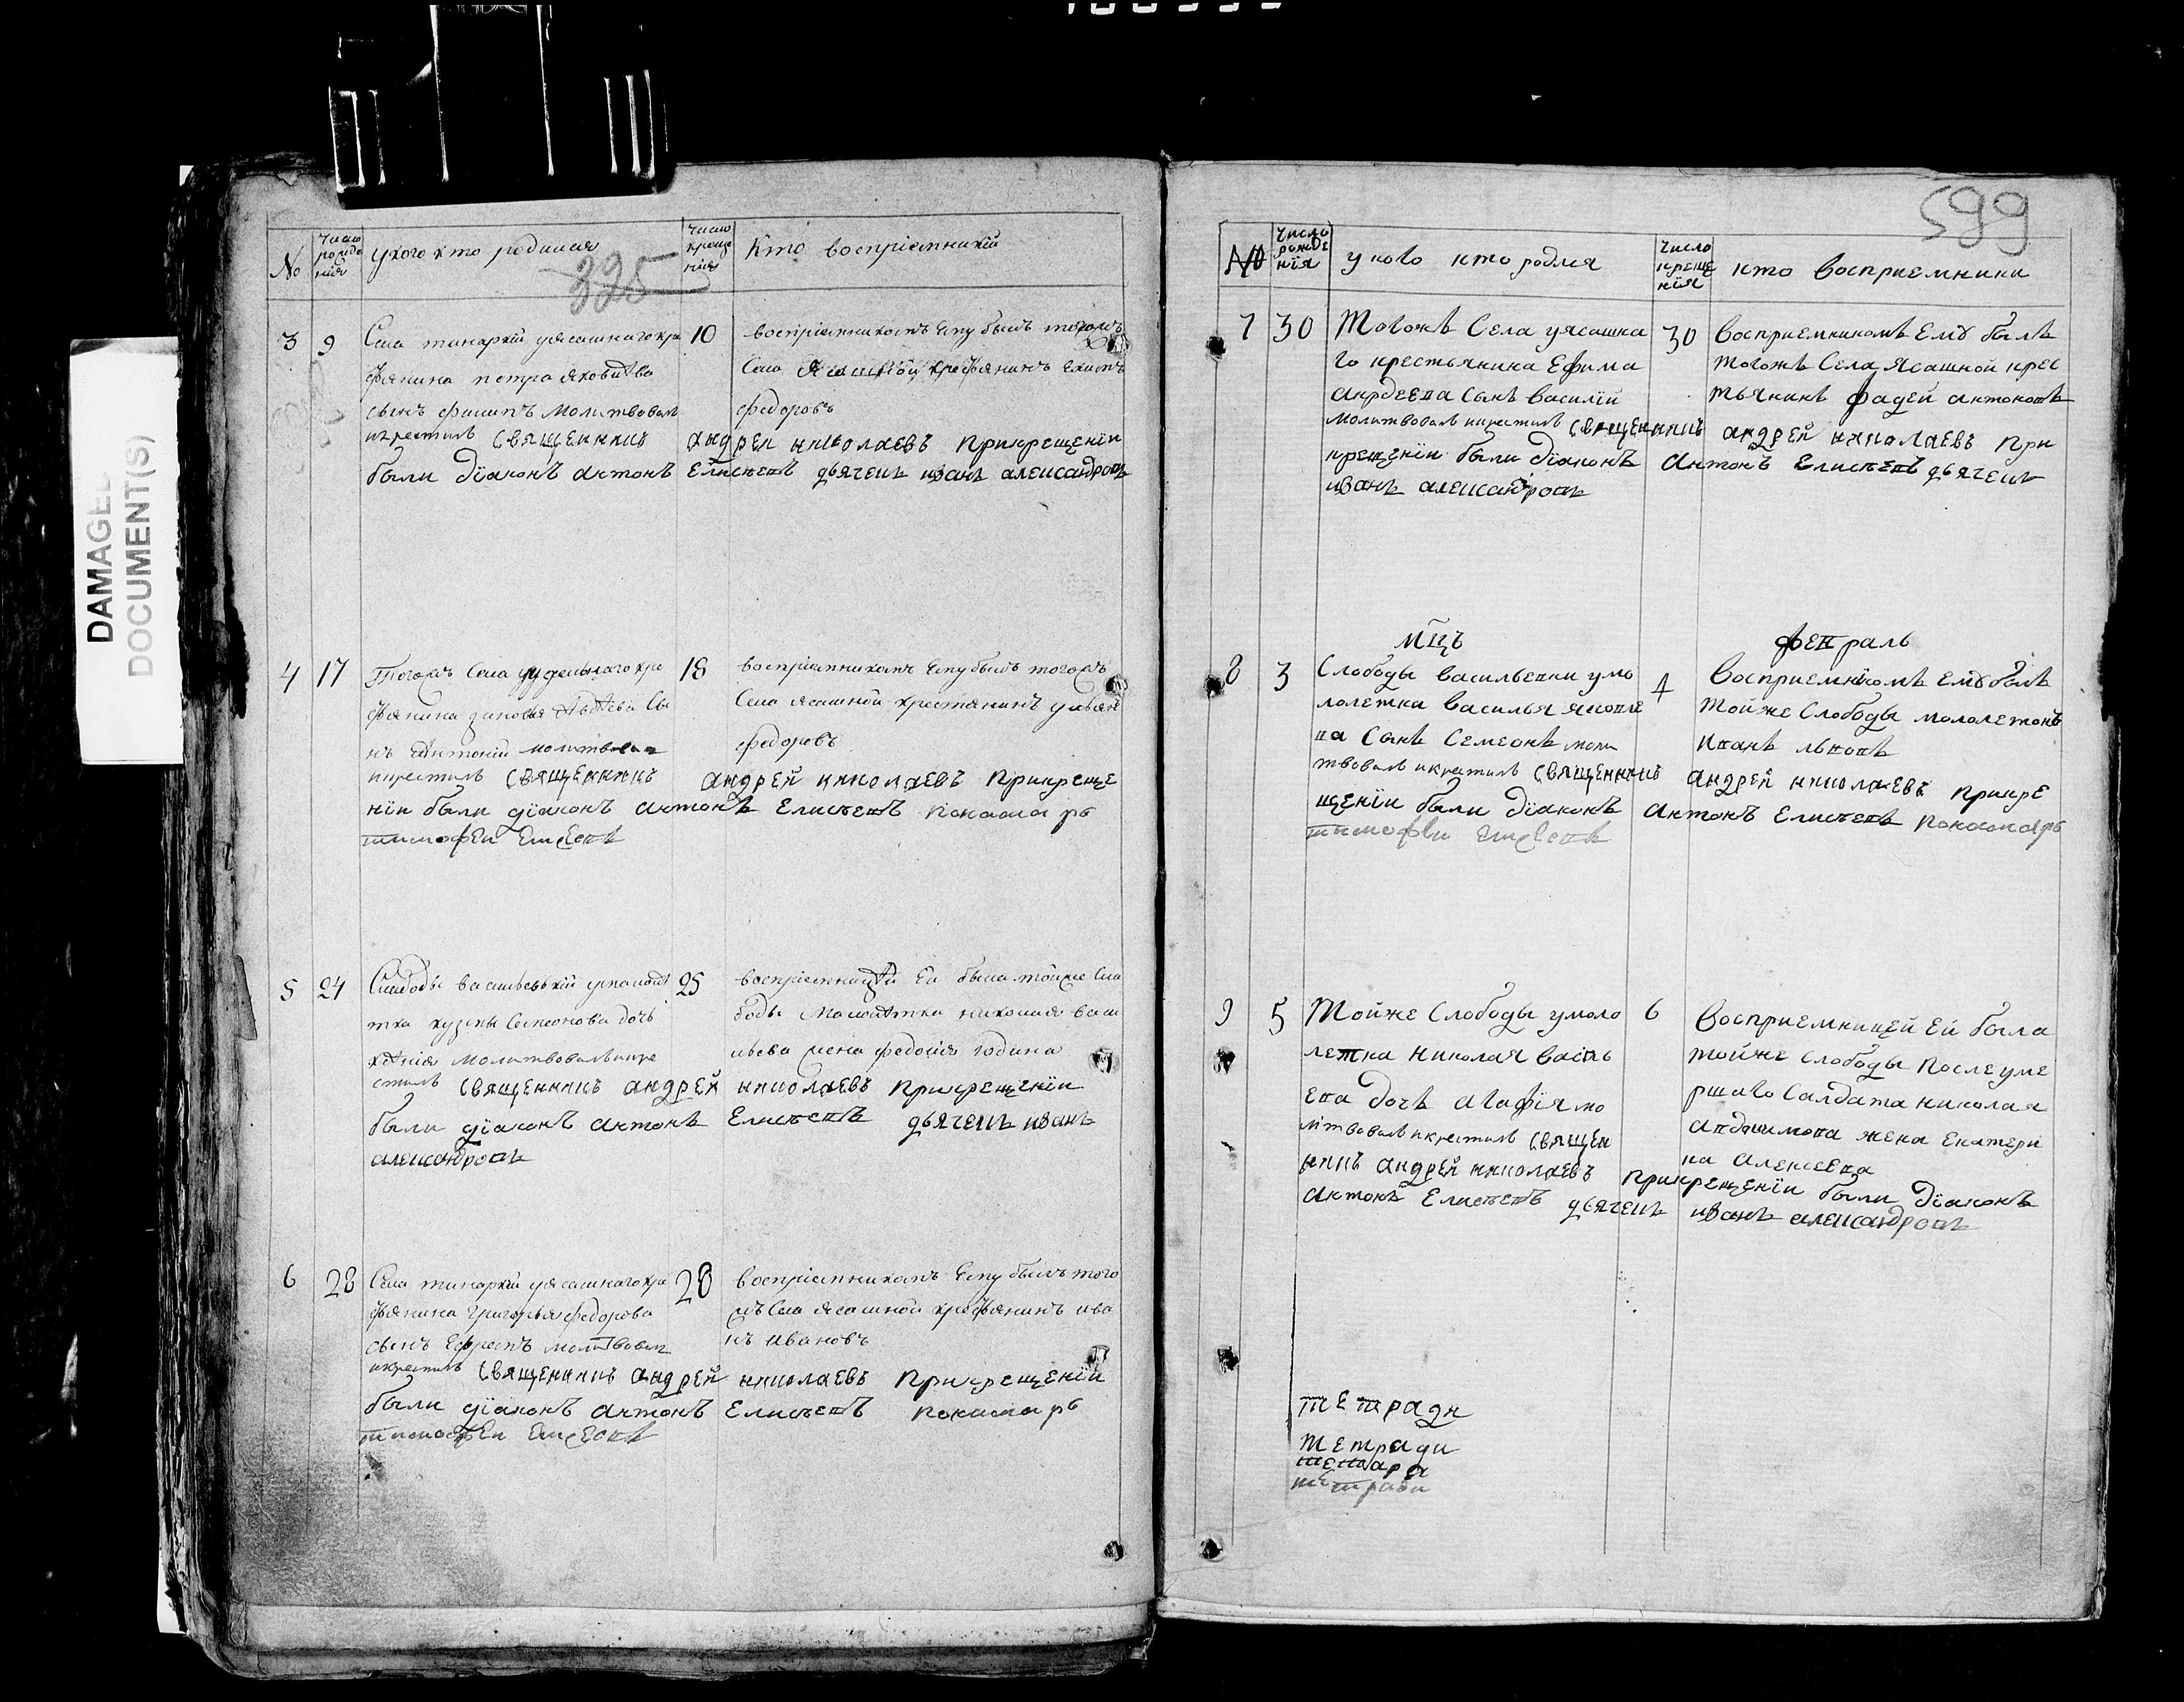 DAMAGED
DOCUMENT(S)
599
325
№
Число рожде нія
у кого кто родился
Число креще нія
Кто воспріемникїи
3 9
Села тинаркїи у ясашнаго кре
стьянина петра яковлева
сынъ филипъ молитвовалъ
икрестилъ священникъ андреи николаевъ При крещенїи
были дїаконъ антонъ Елисеевъ дьячекъ иванъ александровъ
10
воспріемникомъ Ему былъ тогожъ
Села Ясашнои крестьянинъ
федоровъ
4 17
Тогожъ Села у удельнаго кре
стьянина
нъ Антонїи молитвовалъ
икрестилъ священникъ андрей николаевъ При креще
нїи были дїаконъ антонъ Елисеевъ Понамарь
тимофеи Елисеевъ
18
воспріемникомъ Ему былъ тогожъ
Села ясашнои крестянинъ
федоровъ
5 24
Слободы васильевкїи у малолѣ
тка кузмы Семионова дочь
молитвовалъ икре
стилъ священникъ андрей николаевъ При крещенїи
были дїаконъ антонъ Елисеевъ дьячекъ иванъ
александровъ
25
воспріемницеи Еи была тоиже Сло
боды Малолѣтка николая васи
льева жена федосїя родина
6 28
Села тинаркїи у ясашнаго кре
стьянина Григорья федорова
сынъ Ефремъ молитвовалъ
икрестилъ священникъ андрей николаевъ При крещенїи
были дїаконъ антонъ Елисеевъ Понамарь
тимофеи Елисеевъ
28
воспріемникомъ Ему былъ того
жъ Села ясашнои крестьянинъ ива
нъ ивановъ
№
Число рожде нїя
у кого кто родися
Число креще нїя
кто восприемники
7 30
Тогожъ Села у ясашна
го крестьянина Ефима
андреева Сынъ василїи
молитвовалъ икрестилъ священникъ андрей николаевъ При
крещенїи были дїаконъ Антонъ Елисеевъ дьячекъ
иванъ александровъ
30
восприемникомъ Ему былъ
тогожъ Села Ясашной крес
тьянинъ фадей антоновъ
мцъ февраль
8 3
Слободы васильевки у мо
лолетка василья яковле
ва Сынъ Семеонъ моли
твовалъ икрестилъ священникъ андрей николаевъ При кре
щенїи были дїаконъ Антонъ Елисеевъ понамарь
тимофеи Елисеевъ
4
Восприемникомъ Ему былъ
тойже Слободы мололетокъ
Иванъ львовъ
9 5
Тойже Слободы у моло
летка николая василь
ева дочь агафїя мо
литвовалъ икрестилъ священ
никъ андрей николаевъ При крещенїи были дїаконъ
Антонъ Елисеевъ дьячекъ иванъ александровъ
6
Восприемницей ей была
тойже Слободы После уме
ршаго Салдата николая
жена Екатери
на алексеева
тетради
тетради
тетради